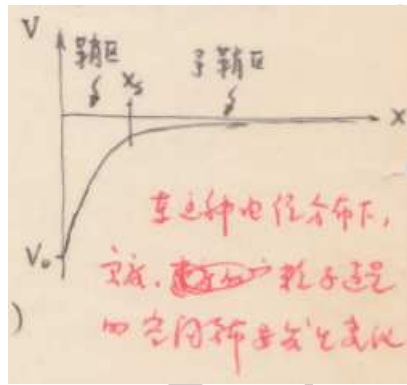 V
鞘区
Xs
予鞘区
X
V₀
在这种电位分布下,
粒子速度
的空间分布要发生变化
)